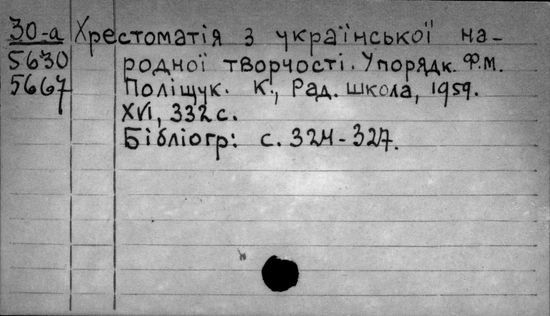 30-а Хрестоматія з української на-
5630 родної творчості. Упорядк. Ф.М.
5667 Поліщук. К., Рад. школа, 1959.
XVI, 332 с.
Бібліогр: с. 324-327.